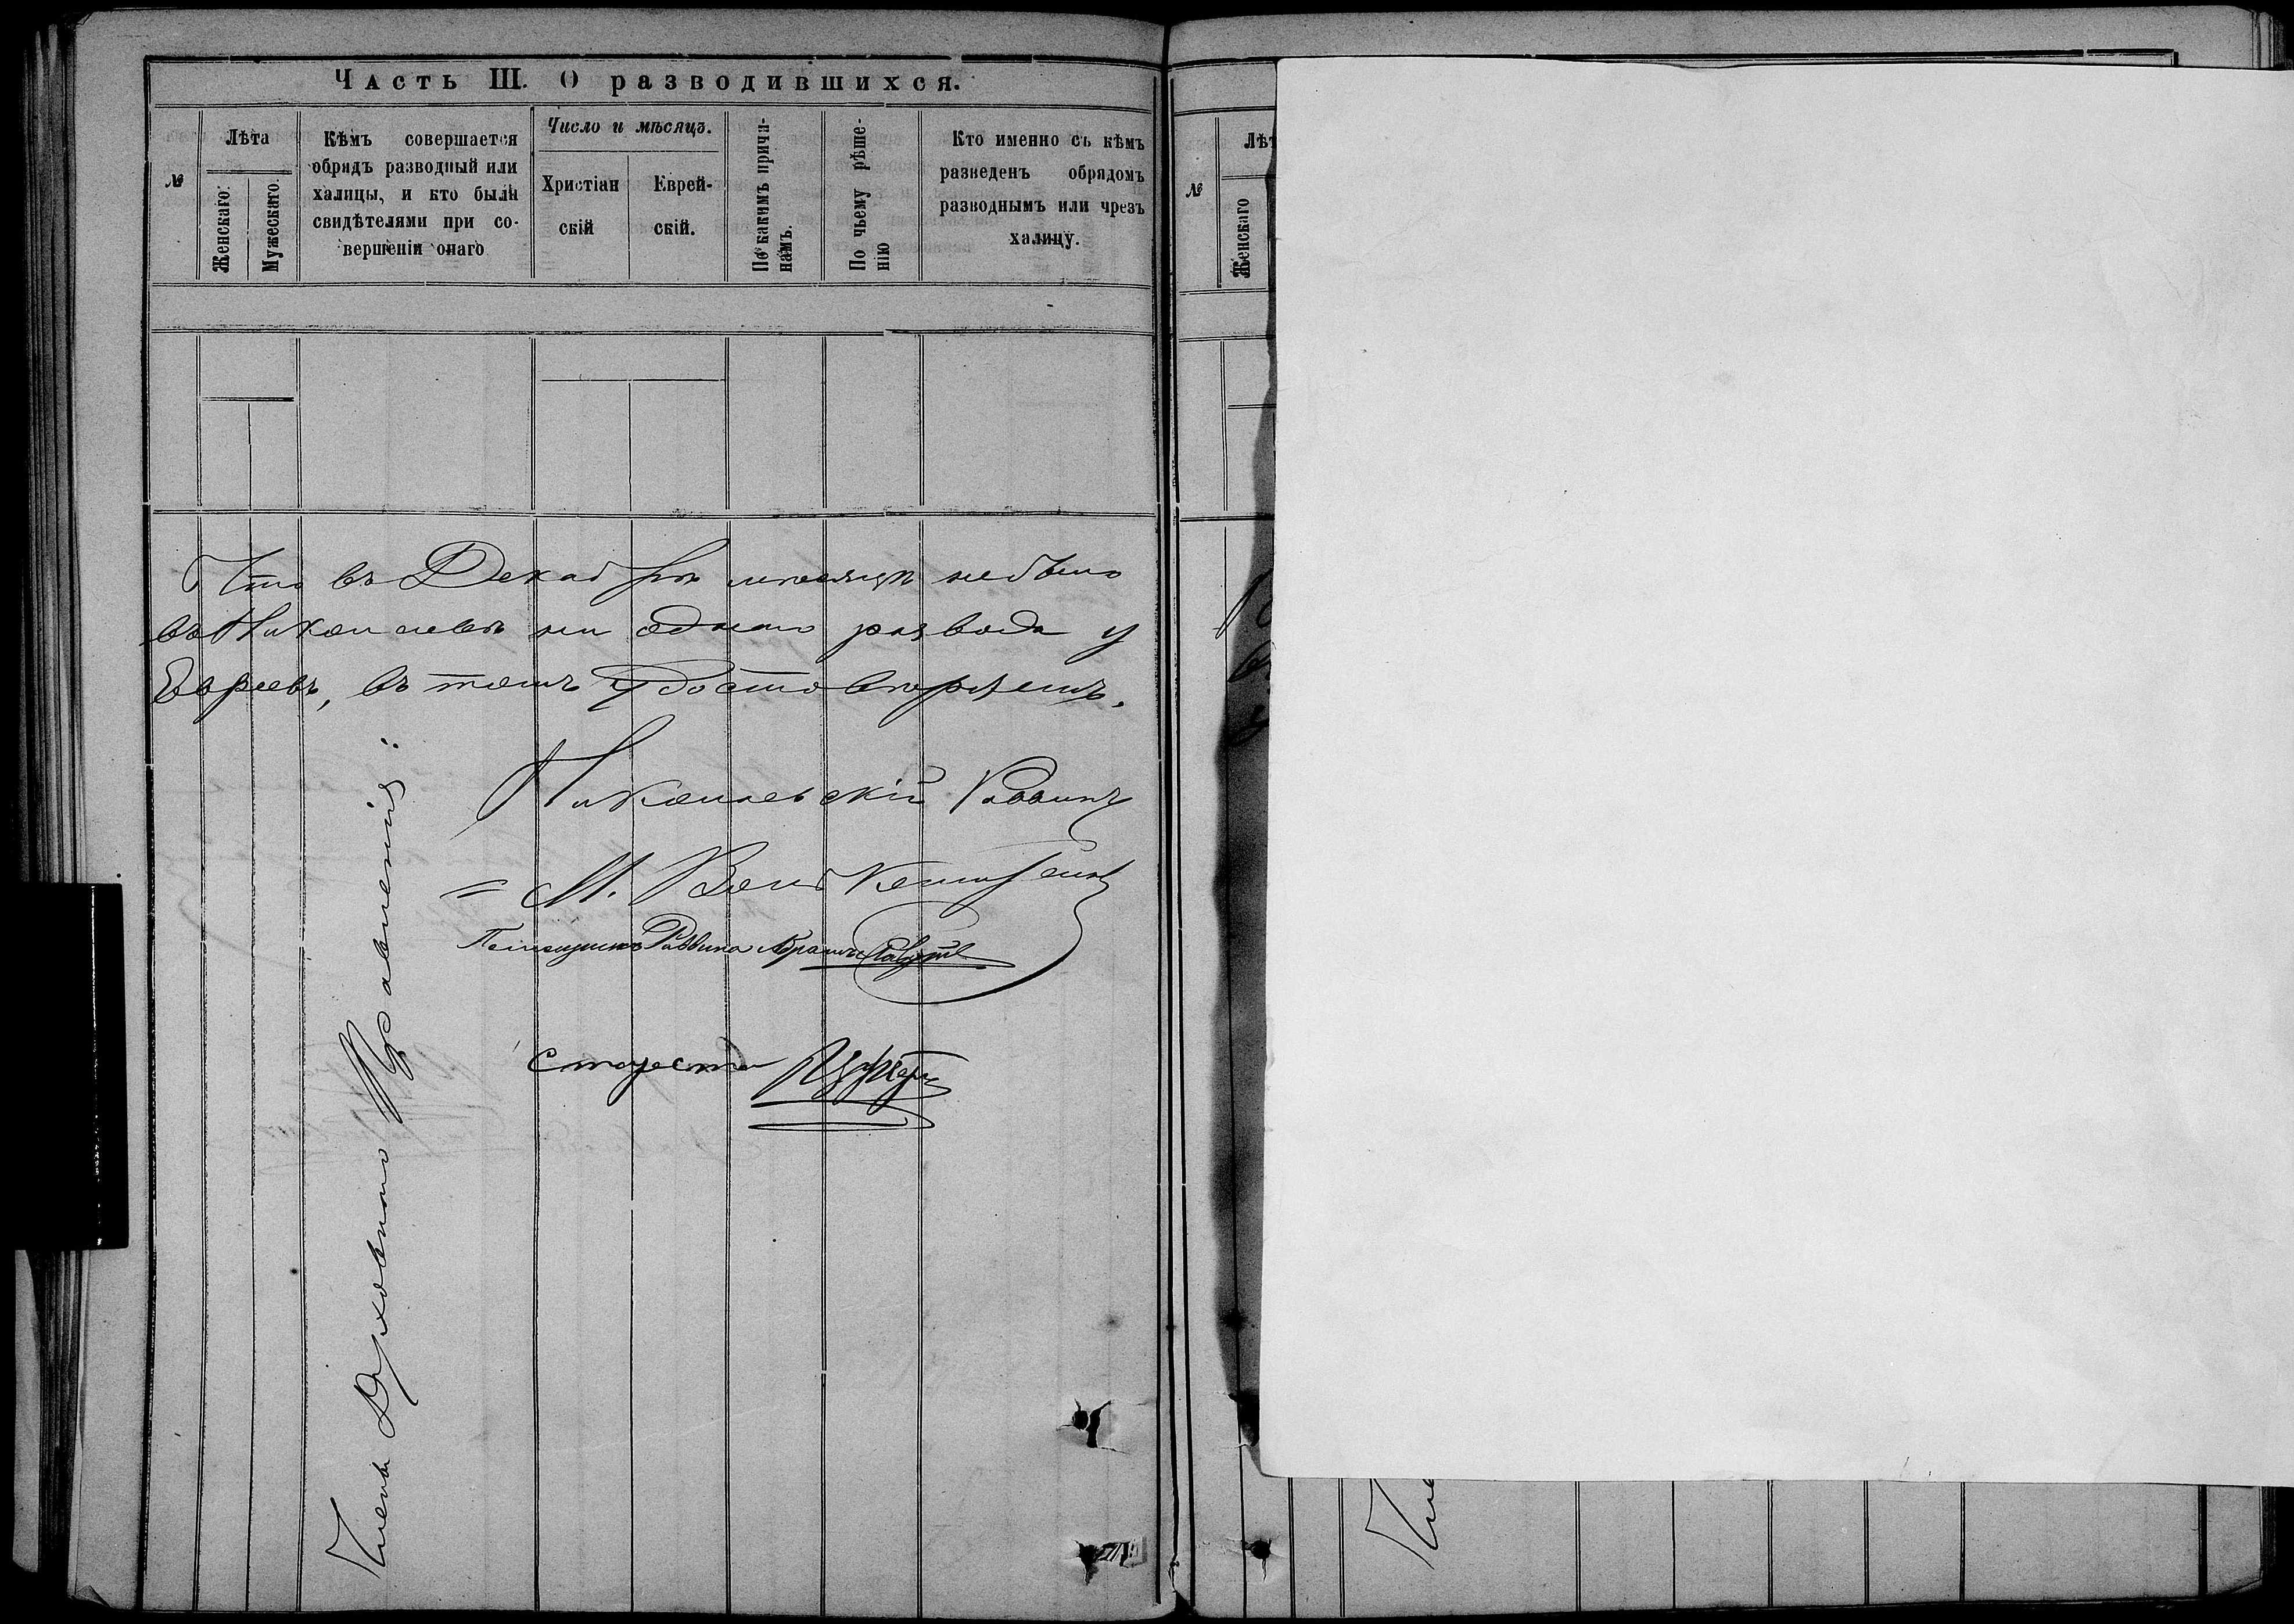 Часть III. О разводившихся.
№
Лѣта
Женскаго.
Мужескаго.
Кѣмъ совершается
обрядъ разводный или
халицы, и кто были
свидѣтелями при со-
вершеніи онаго
Число и мѣсяцъ.
Христіан
скій
Еврей-
скій.
По какимъ причи-
намъ.
По чьему рѣше-
нію
Кто именно съ кѣмъ
разведенъ обрядомъ
разводнымъ или чрезъ
халицу.
Что въ Декабрѣ мѣсяцѣ небыло
въ Николаевѣ ни одного развода у
Евреевъ, въ томъ удостовѣряемъ.
Николаевскій Раввинъ
М.
Помощникъ Раввина Абрамъ
Староста
Члены Духовного Правленія:
№
Лѣт
Женскаго
Чле